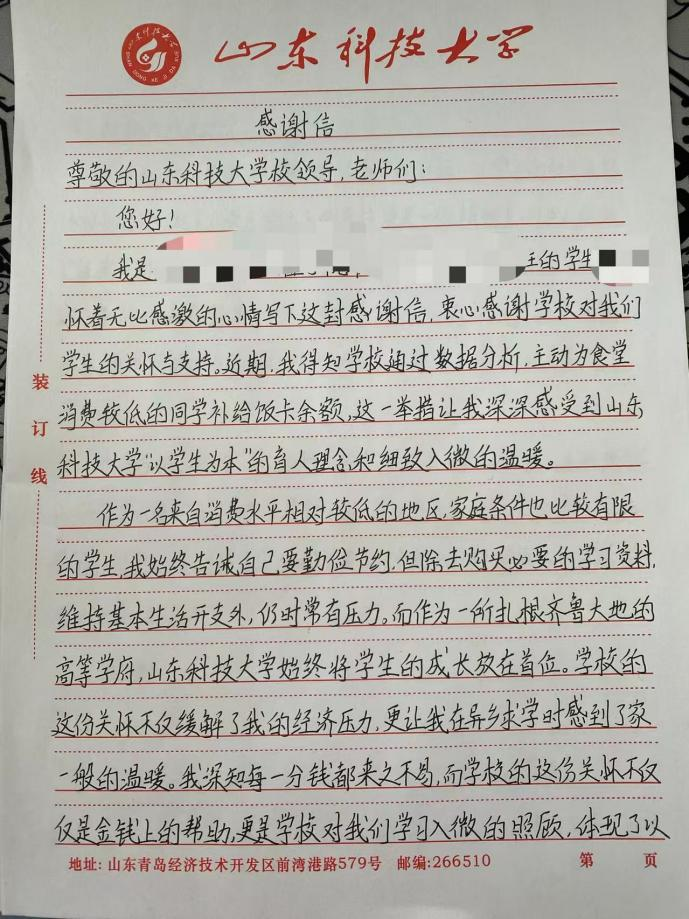 山东科技大学
感谢信
尊敬的山东科技大学校领导,老师们:
您好!
我是 的学生
怀着无比感激的心情写下这封感谢信,衷心感谢学校对我们
学生的关怀与支持。近期,我得知学校通过数据分析,主动为食堂
消费较低的同学补给饭卡余额,这一举措让我深深感受到山东
科技大学“以学生为本”的育人理念和细致入微的温暖。
作为一名来自消费水平相对较低的地区,家庭条件也比较有限
的学生,我始终告诫自己要勤俭节约,但除去购买必要的学习资料,
维持基本生活开支外,仍时常有压力。而作为一所扎根齐鲁大地的
高等学府,山东科技大学始终将学生的成长放在首位。学校的
这份关怀不仅缓解了我的经济压力,更让我在异乡求学时感到了家
一般的温暖。我深知每一分钱都来之不易,而学校的这份关怀不仅
仅是金钱上的帮助,更是学校对我们学习入微的照顾,体现了以
装订线
地址: 山东青岛经济技术开发区前湾港路579号 邮编:266510 第 页